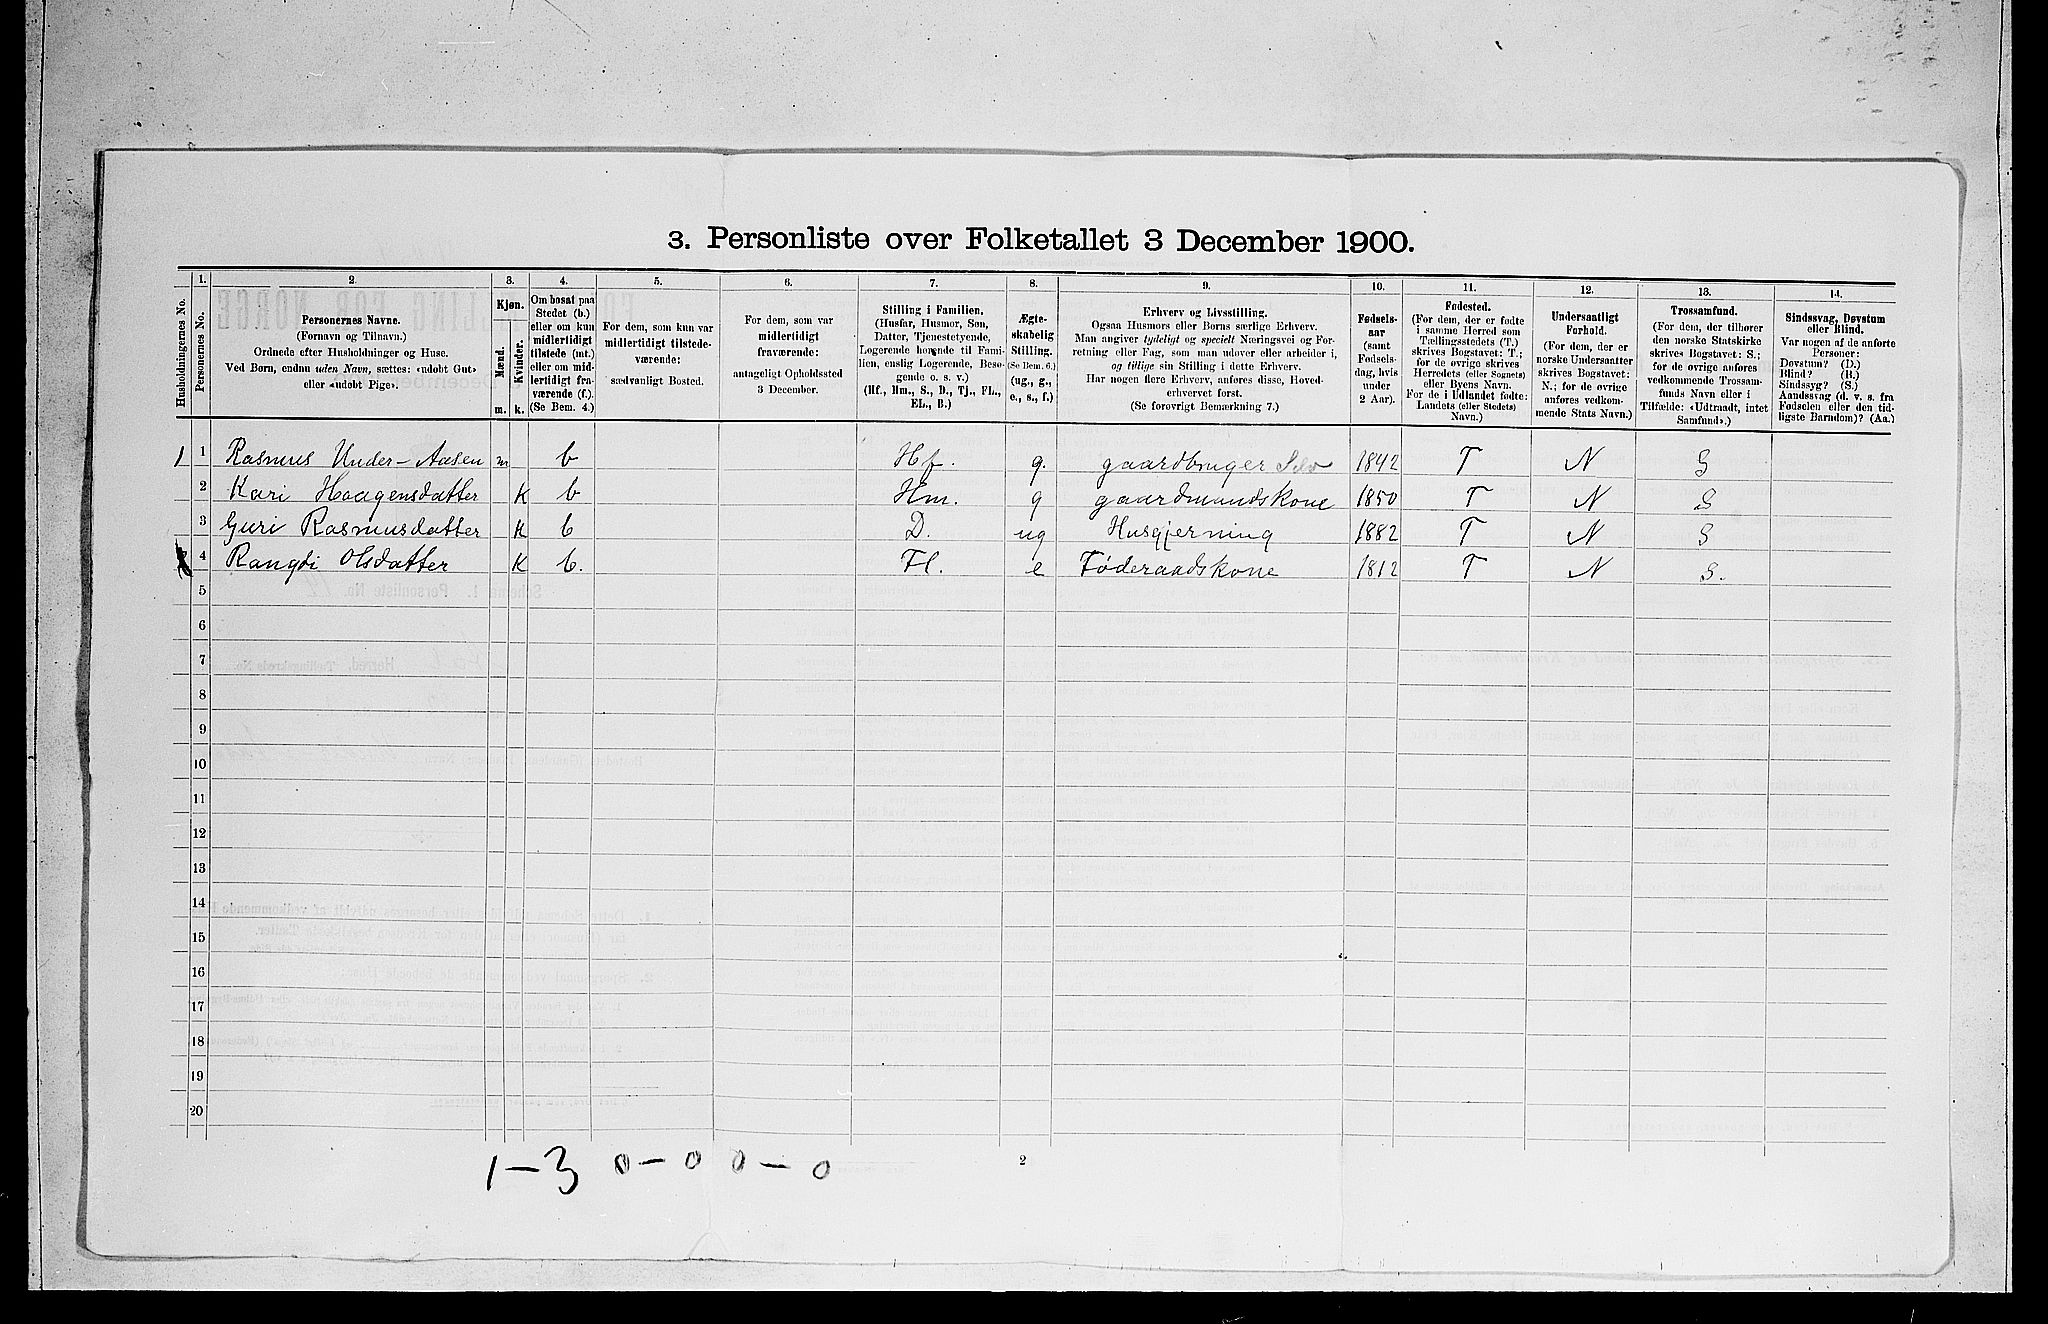 3. Personliste over Folketallet 3 December 1900.
Husholdningernes No.
1.
Personernes No.
2.
Personernes Navne.
(Fornavn og Tilnavn.)
Ordnede efter Husholdninger og Huse.
Ved Børn, endnu uden Navn, sættes: «udøbt Gut»
eller «udøbt Pige».
3.
Kjøn.
Mænd.
Kvinder.
m. k.
4.
Om bosat paa
Stedet (b.)
eller om kun
midlertidigt
tilstede (mt.)
eller om mid-
lertidigt fra-
værende (f.).
(Se Bem. 4.)
5.
For dem, som kun var
midlertidigt tilstede-
værende:
sædvanligt Bosted.
6.
For dem, som var
midlertidigt
fraværende:
antageligt Opholdssted
3 December.
7.
Stilling i Familien.
(Husfar, Husmor, Søn,
Datter, Tjenestetyende,
Logerende hørende til Fami-
lien, enslig Logerende, Besø-
gende o. s. v.)
(Hf., Hm., S., D., Tj., FL.,
EL., B.)
8.
Ægte-
skabelig
Stilling.
(Se Bem. 6.)
(ug., g.,
e., s., f.)
9.
Erhverv og Livsstilling.
Ogsaa Husmors eller Børns særlige Erhverv.
Man angiver tydeligt og specielt Næringsvei og For-
retning eller Fag, som man udøver eller arbeider i,
og tillige sin Stilling i dette Erhverv.
Har nogen flere Erhverv, anføres disse, Hoved-
erhvervet først.
(Se forøvrigt Bemærkning 7.)
10.
Fødsels-
aar
(samt
Fødsels-
dag, hvis
under
2 Aar).
11.
Fødested.
(For dem, der er fødte
i samme Herred som
Tællingsstedets (T.)
skrives Bogstavet: T.;
for de øvrige skrives
Herredets (eller Sognets)
eller Byens Navn.
For de i Udlandet fødte:
Landets (eller Stedets)
Navn.)
12.
Undersaatligt
Forhold.
(For dem, der er
norske Undersaatter
skrives Bogstavet:
N.; for de øvrige
anføres vedkom-
mende Stats Navn.)
13.
Trossamfund.
(For dem, der tilhører
den norske Statskirke
skrives Bogstavet: S.;
for de øvrige anføres
vedkommende Trossam-
funds Navn eller i
Tilfælde: «Udtraadt, intet
Samfund».)
14.
Sindssvag, Døvstum
eller Blind.
Var nogen af de anførte
Personer:
Døvstum? (D.)
Blind? (B.)
Sindssyg? (S.)
Aandssvag (d. v. s. fra
Fødselen eller den tid-
ligste Barndom)? (Aa.)
1 1 Rasmus Under-Aasen m b Hf. g. gaardbruger Selv 1842 T N S
2 Kari Haagensdatter K b Hm. g gaardmandskone 1850 T N S
3 Guri Rasmusdatter K b D. ug Husgjerning 1882 T N S
4 Rangdi Olsdatter K b. Fl. e Føderaadskone 1812 T N S.
5
6
7
8
9
10
11
12
13
14
15
16
17
18
19
20
1-3 0-0 0-0
2